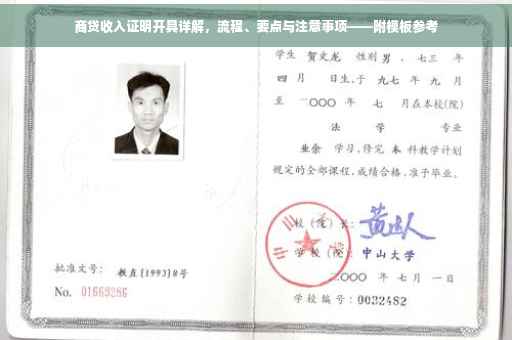 商贷收入证明开具详解，流程、要点与注意事项——附模板参考
学生 贺文龙 性别 男，七三 年
四 月 日生，于 九七 年 九 月
至 二〇〇〇 年 七 月在本校(院)
法 学 专业
业余 学习，修完 本 科教学计划
规定的全部课程，成绩合格，准予毕业。
校（院）长：
学 校（院）：中山大学
二〇〇〇 年 七 月 一 日
学校编号：0032482
批准文号：教直[1993]8号
No. 01669286